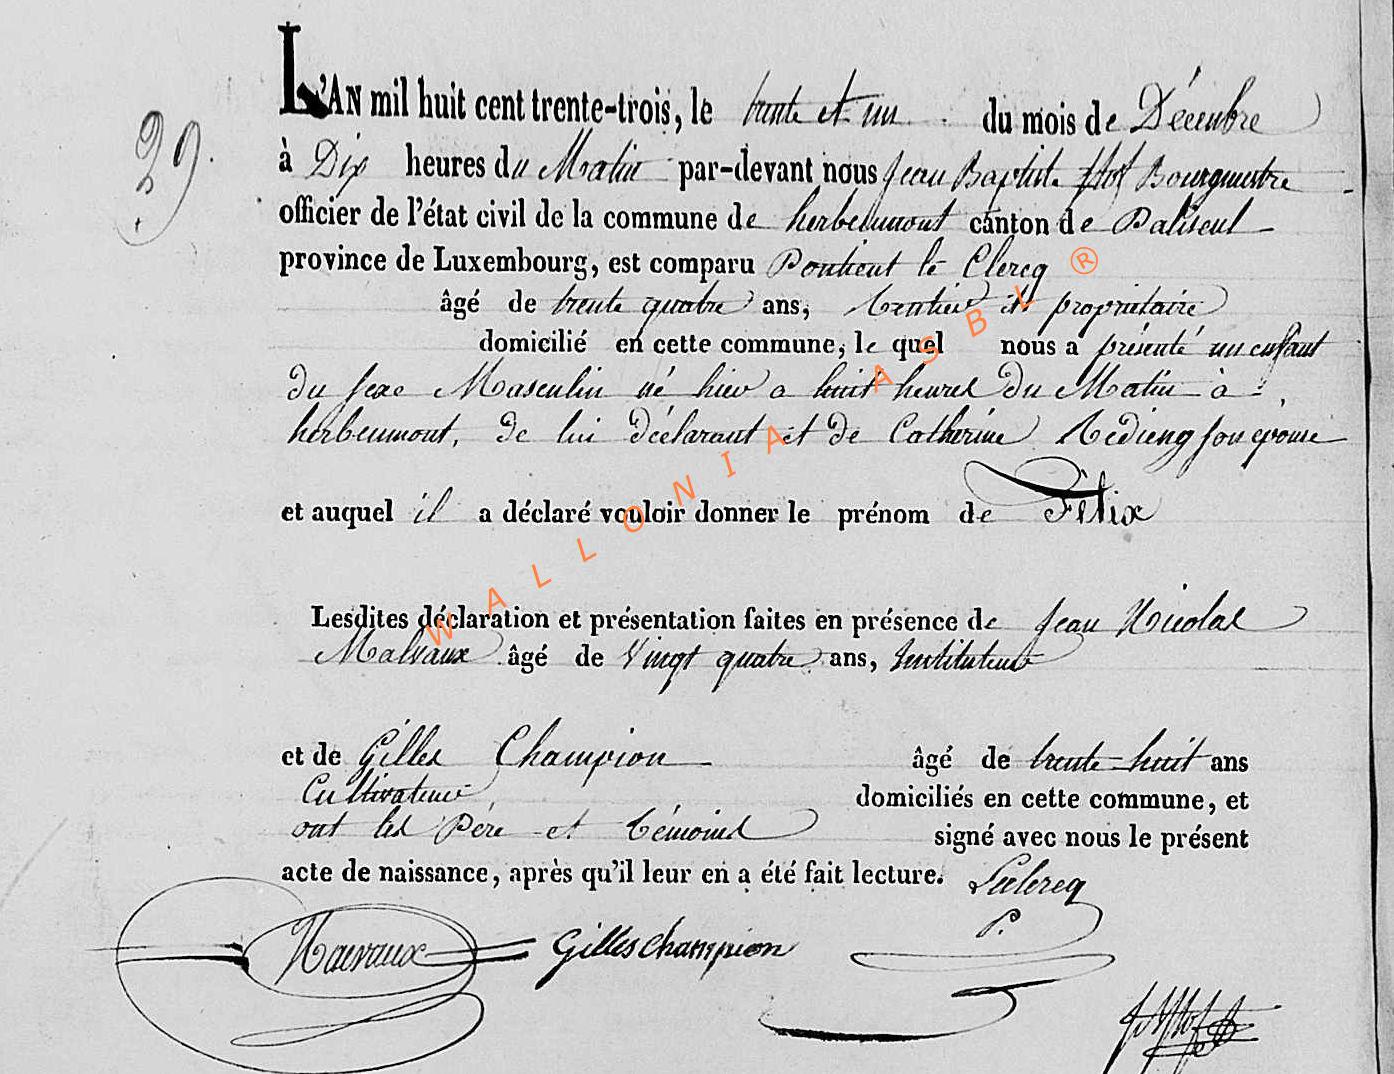 L'AN mil huit cent trente-trois, le trente et un du mois de Décembre
29.
à Dix heures du Matin par-devant nous Jean Baptiste Bourgmestre
officier de l'état civil de la commune de herbeumont canton de Paliseul
province de Luxembourg, est comparu Pontient le Clercq
âgé de trente quatre ans, Rentier et propriétaire
domicilié en cette commune, le quel nous a présenté un enfant
du sexe Masculin né hier a huit heures du Matin à
herbeumont, de lui déclarant et de Catherine Redieng son epouse
et auquel il a déclaré vouloir donner le prénom de Félix
Lesdites déclaration et présentation faites en présence de Jean Nicolas
Malvaux âgé de Vingt quatre ans, Instituteur
et de Gilles Champion âgé de trente-huit ans
Cultivateur domiciliés en cette commune, et
ont les Père et témoins signé avec nous le présent
acte de naissance, après qu'il leur en a été fait lecture. Leclercq
P.
Malvaux Gilles champion
WALLONIA ASBL ®